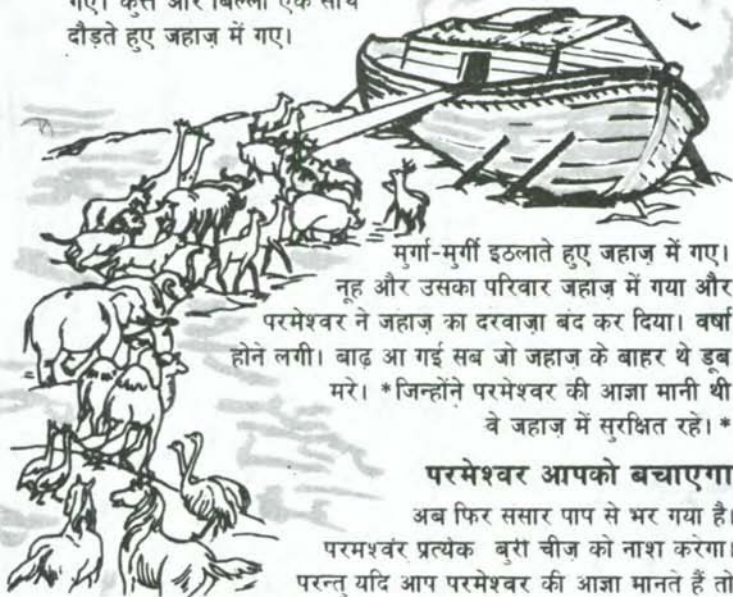 गए। कुत्ते और बिल्ली एक साथ
दौड़ते हुए जहाज़ में गए।
मुर्गा-मुर्गी इठलाते हुए जहाज़ में गए।
नूह और उसका परिवार जहाज़ में गया और
परमेश्वर ने जहाज़ का दरवाज़ा बंद कर दिया। वर्षा
होने लगी। बाढ़ आ गई सब जो जहाज़ के बाहर थे डूब
मरे। *जिन्होंने परमेश्वर की आज्ञा मानी थी
वे जहाज़ में सुरक्षित रहे। *
परमेश्वर आपको बचाएगा
अब फिर ससार पाप से भर गया है।
परमश्वर प्रत्येक बुरी चीज़ को नाश करेगा।
परन्तु यदि आप परमेश्वर की आज्ञा मानते हैं तो